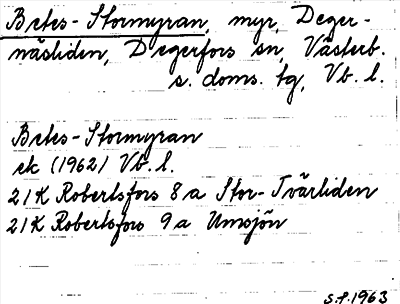 Betes-Stormyran, myr, Deger-
näsliden, Degerfors sn, Västerb.
s. doms. tg, Vb. l.
Betes-Stormyran
ek (1962) Vb. l.
21K Robertsfors 8 a Stor-Tvärliden
21K Robertsfors 9 a Umsjön
S.P. 1963